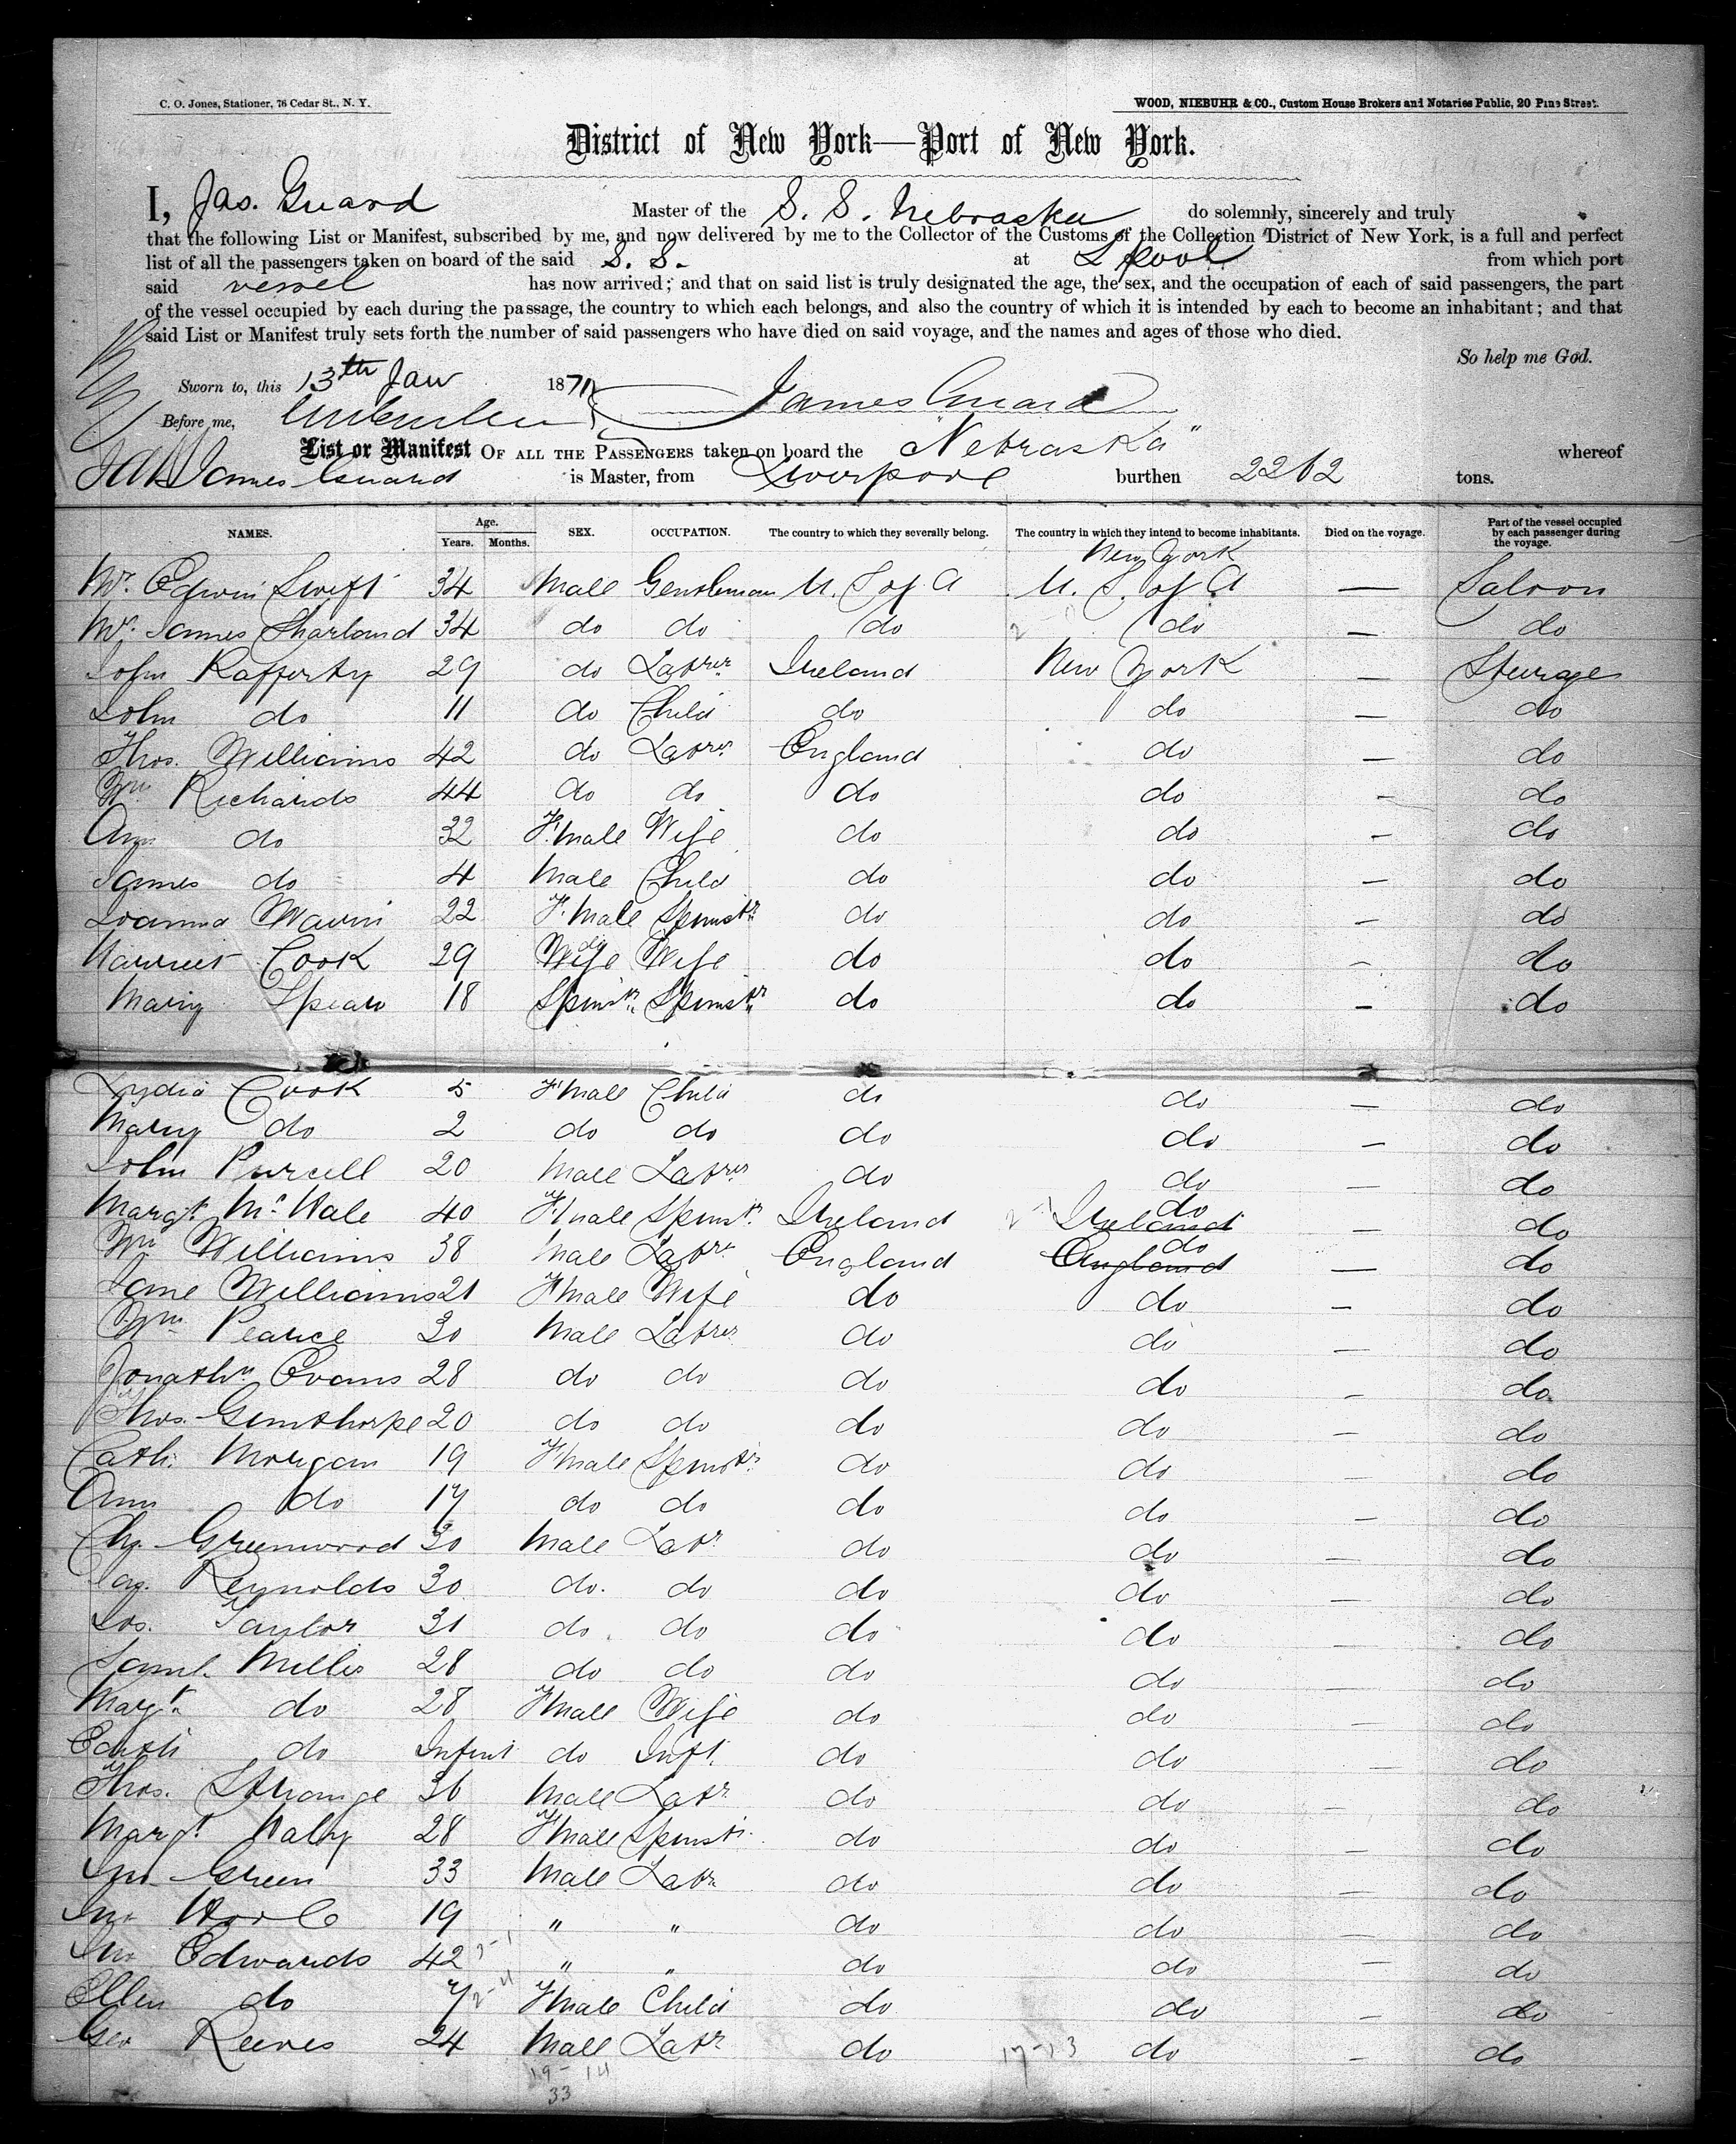 C. O. Jones, Stationer, 76 Cedar St., N. Y.
WOOD, NIEBUHR & CO., Custom House Brokers and Notaries Public, 20 Pine Street.
District of New York—Port of New York.
I, Jas. Guard Master of the S. S. Nebraska do solemnly, sincerely and truly
that the following List or Manifest, subscribed by me, and now delivered by me to the Collector of the Customs of the Collection District of New York, is a full and perfect
list of all the passengers taken on board of the said S. S. at L'pool from which port
said vessel has now arrived; and that on said list is truly designated the age, the sex, and the occupation of each of said passengers, the part
of the vessel occupied by each during the passage, the country to which each belongs, and also the country of which it is intended by each to become an inhabitant; and that
said List or Manifest truly sets forth the number of said passengers who have died on said voyage, and the names and ages of those who died.
So help me God.
Sworn to, this 13th Jan 1871 James Guard
Before me,
List or Manifest OF ALL THE PASSENGERS taken on board the "Nebraska" whereof
James Guard is Master, from Liverpool burthen 2262 tons.
NAMES. Age. Years. Months. SEX. OCCUPATION. The country to which they severally belong. The country in which they intend to become inhabitants. Died on the voyage. Part of the vessel occupied by each passenger during the voyage.
New York
Mr. Edwin Swift 34 Male Gentleman U. S of A U. S. of A — Saloon
Mr. James Sharland 34 do do do do — do
John Rafferty 29 do Labrer Ireland New York — Sturage
John do 11 do Child do do — do
Thos. Williams 42 do Labrer England do — do
Wm Richards 44 do do do do — do
Ann do 32 F.male Wife do do — do
James do 4 Male Child do do — do
Joanna 22 F.male Spinstr do do — do
Harriet Cook 29 Wife do Wife do do — do
Mary Spear 18 Spinstr Spinstr do do — do
Lydia Cook 5 Fmale Child do do — do
Mary do 2 do do do do — do
John Purcell 20 Male Labrer do do — do
Margt. Mc Hale 40 Fmale Spinstr. Ireland Ireland do — do
Wm Williams 38 Male Labrr England England do — do
Jane Williams 21 Fmale Wife do do — do
Wm Pearce 30 Male Labrer do do — do
Jonathn Evans 28 do do do do — do
Thos. Gimthorpe 20 do do do do — do
Cath. Morgan 19 Fmale Spinstr do do — do
Ann do 17 do do do do — do
Chs. Greenwood 30 Male Labr do do — do
Jas. Reynolds 30 do. do do do — do
Jos. Taylor 31 do do do do — do
Saml. Millis 28 do do do do — do
Margt. do 28 Fmale Wife do do — do
do Infint do Inft. do do — do
Thos. Strange 36 Male Labr. do do — do
Margt. Haly 28 Fmale Spinstr. do do — do
Jno Green 33 Male Labr do do — do
Jno 19 " " do do — do
Jno Edwards 42 " " do do — do
Ellen do 7 Fmale Child do do — do
Geo Reeves 24 Male Labr do do — do
17-13
19-14
33